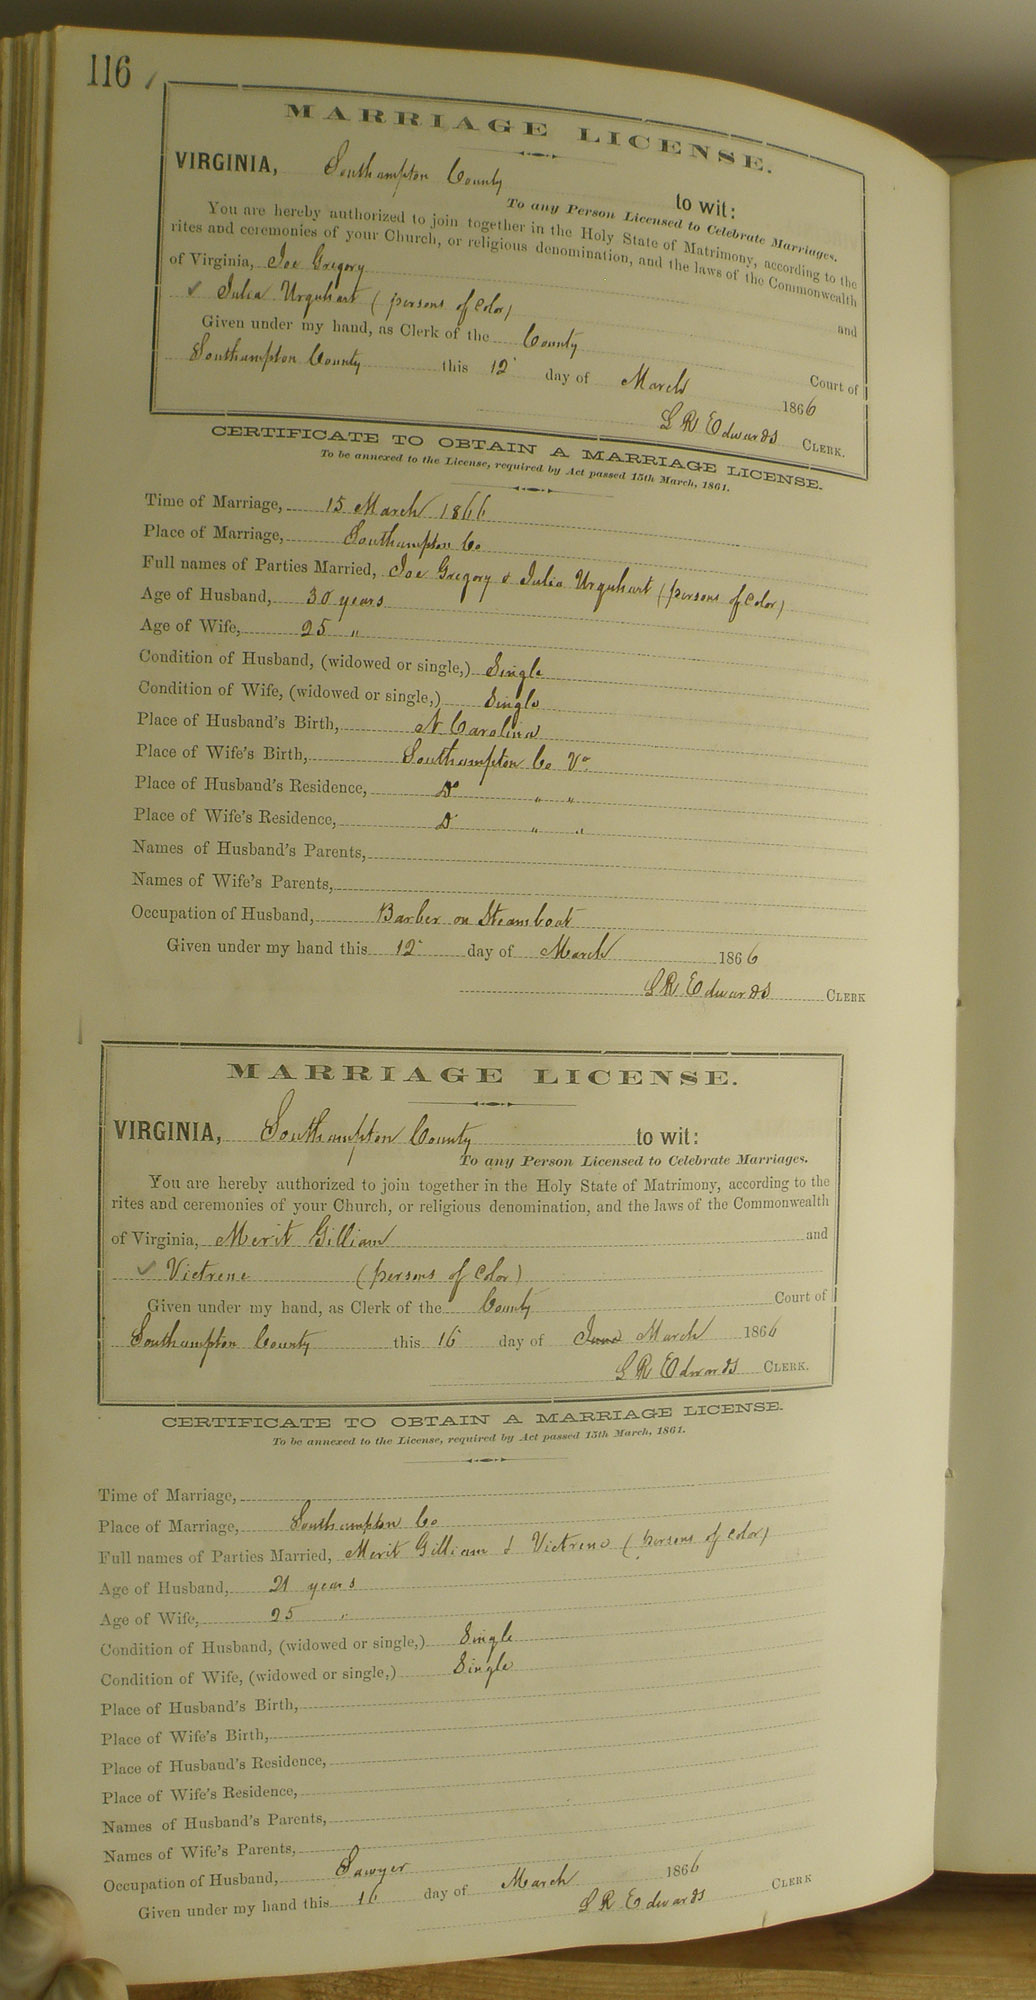 116
MARRIAGE LICENSE.
VIRGINIA, Southampton County to wit:
To any Person Licensed to Celebrate Marriages.
You are hereby authorized to join together in the Holy State of Matrimony, according to the
rites and ceremonies of your Church, or religious denomination, and the laws of the Commonwealth
of Virginia, Joe Gregory and
✓ Julia Urquhart (persons of Color)
Given under my hand, as Clerk of the County Court of
Southampton County this 12 day of March 1866
L R Edwards CLERK.
CERTIFICATE TO OBTAIN A MARRIAGE LICENSE.
To be annexed to the License, required by Act passed 15th March, 1861.
Time of Marriage, 15 March 1866
Place of Marriage, Southampton Co
Full names of Parties Married, Joe Gregory & Julia Urquhart (persons of Color)
Age of Husband, 30 years
Age of Wife, 25 "
Condition of Husband, (widowed or single,) Single
Condition of Wife, (widowed or single,) Single
Place of Husband's Birth, N Carolina
Place of Wife's Birth, Southampton Co Va
Place of Husband's Residence, Do " "
Place of Wife's Residence, Do " "
Names of Husband's Parents,
Names of Wife's Parents,
Occupation of Husband, Barber on Steamboat
Given under my hand this 12 day of March 1866
L R Edwards CLERK
MARRIAGE LICENSE.
VIRGINIA, Southampton County to wit:
To any Person Licensed to Celebrate Marriages.
You are hereby authorized to join together in the Holy State of Matrimony, according to the
rites and ceremonies of your Church, or religious denomination, and the laws of the Commonwealth
of Virginia, Merit Gilliam and
✓ Victrene (persons of Color)
Given under my hand, as Clerk of the County Court of
Southampton County this 16 day of June March 1866
L R Edwards CLERK.
CERTIFICATE TO OBTAIN A MARRIAGE LICENSE.
To be annexed to the License, required by Act passed 15th March, 1861.
Time of Marriage,
Place of Marriage, Southampton Co
Full names of Parties Married, Merit Gilliam & Victrene (persons of Color)
Age of Husband, 21 years
Age of Wife, 25 "
Condition of Husband, (widowed or single,) Single
Condition of Wife, (widowed or single,) Single
Place of Husband's Birth,
Place of Wife's Birth,
Place of Husband's Residence,
Place of Wife's Residence,
Names of Husband's Parents,
Names of Wife's Parents,
Occupation of Husband, Sawyer
Given under my hand this 16 day of March 1866
L R Edwards CLERK